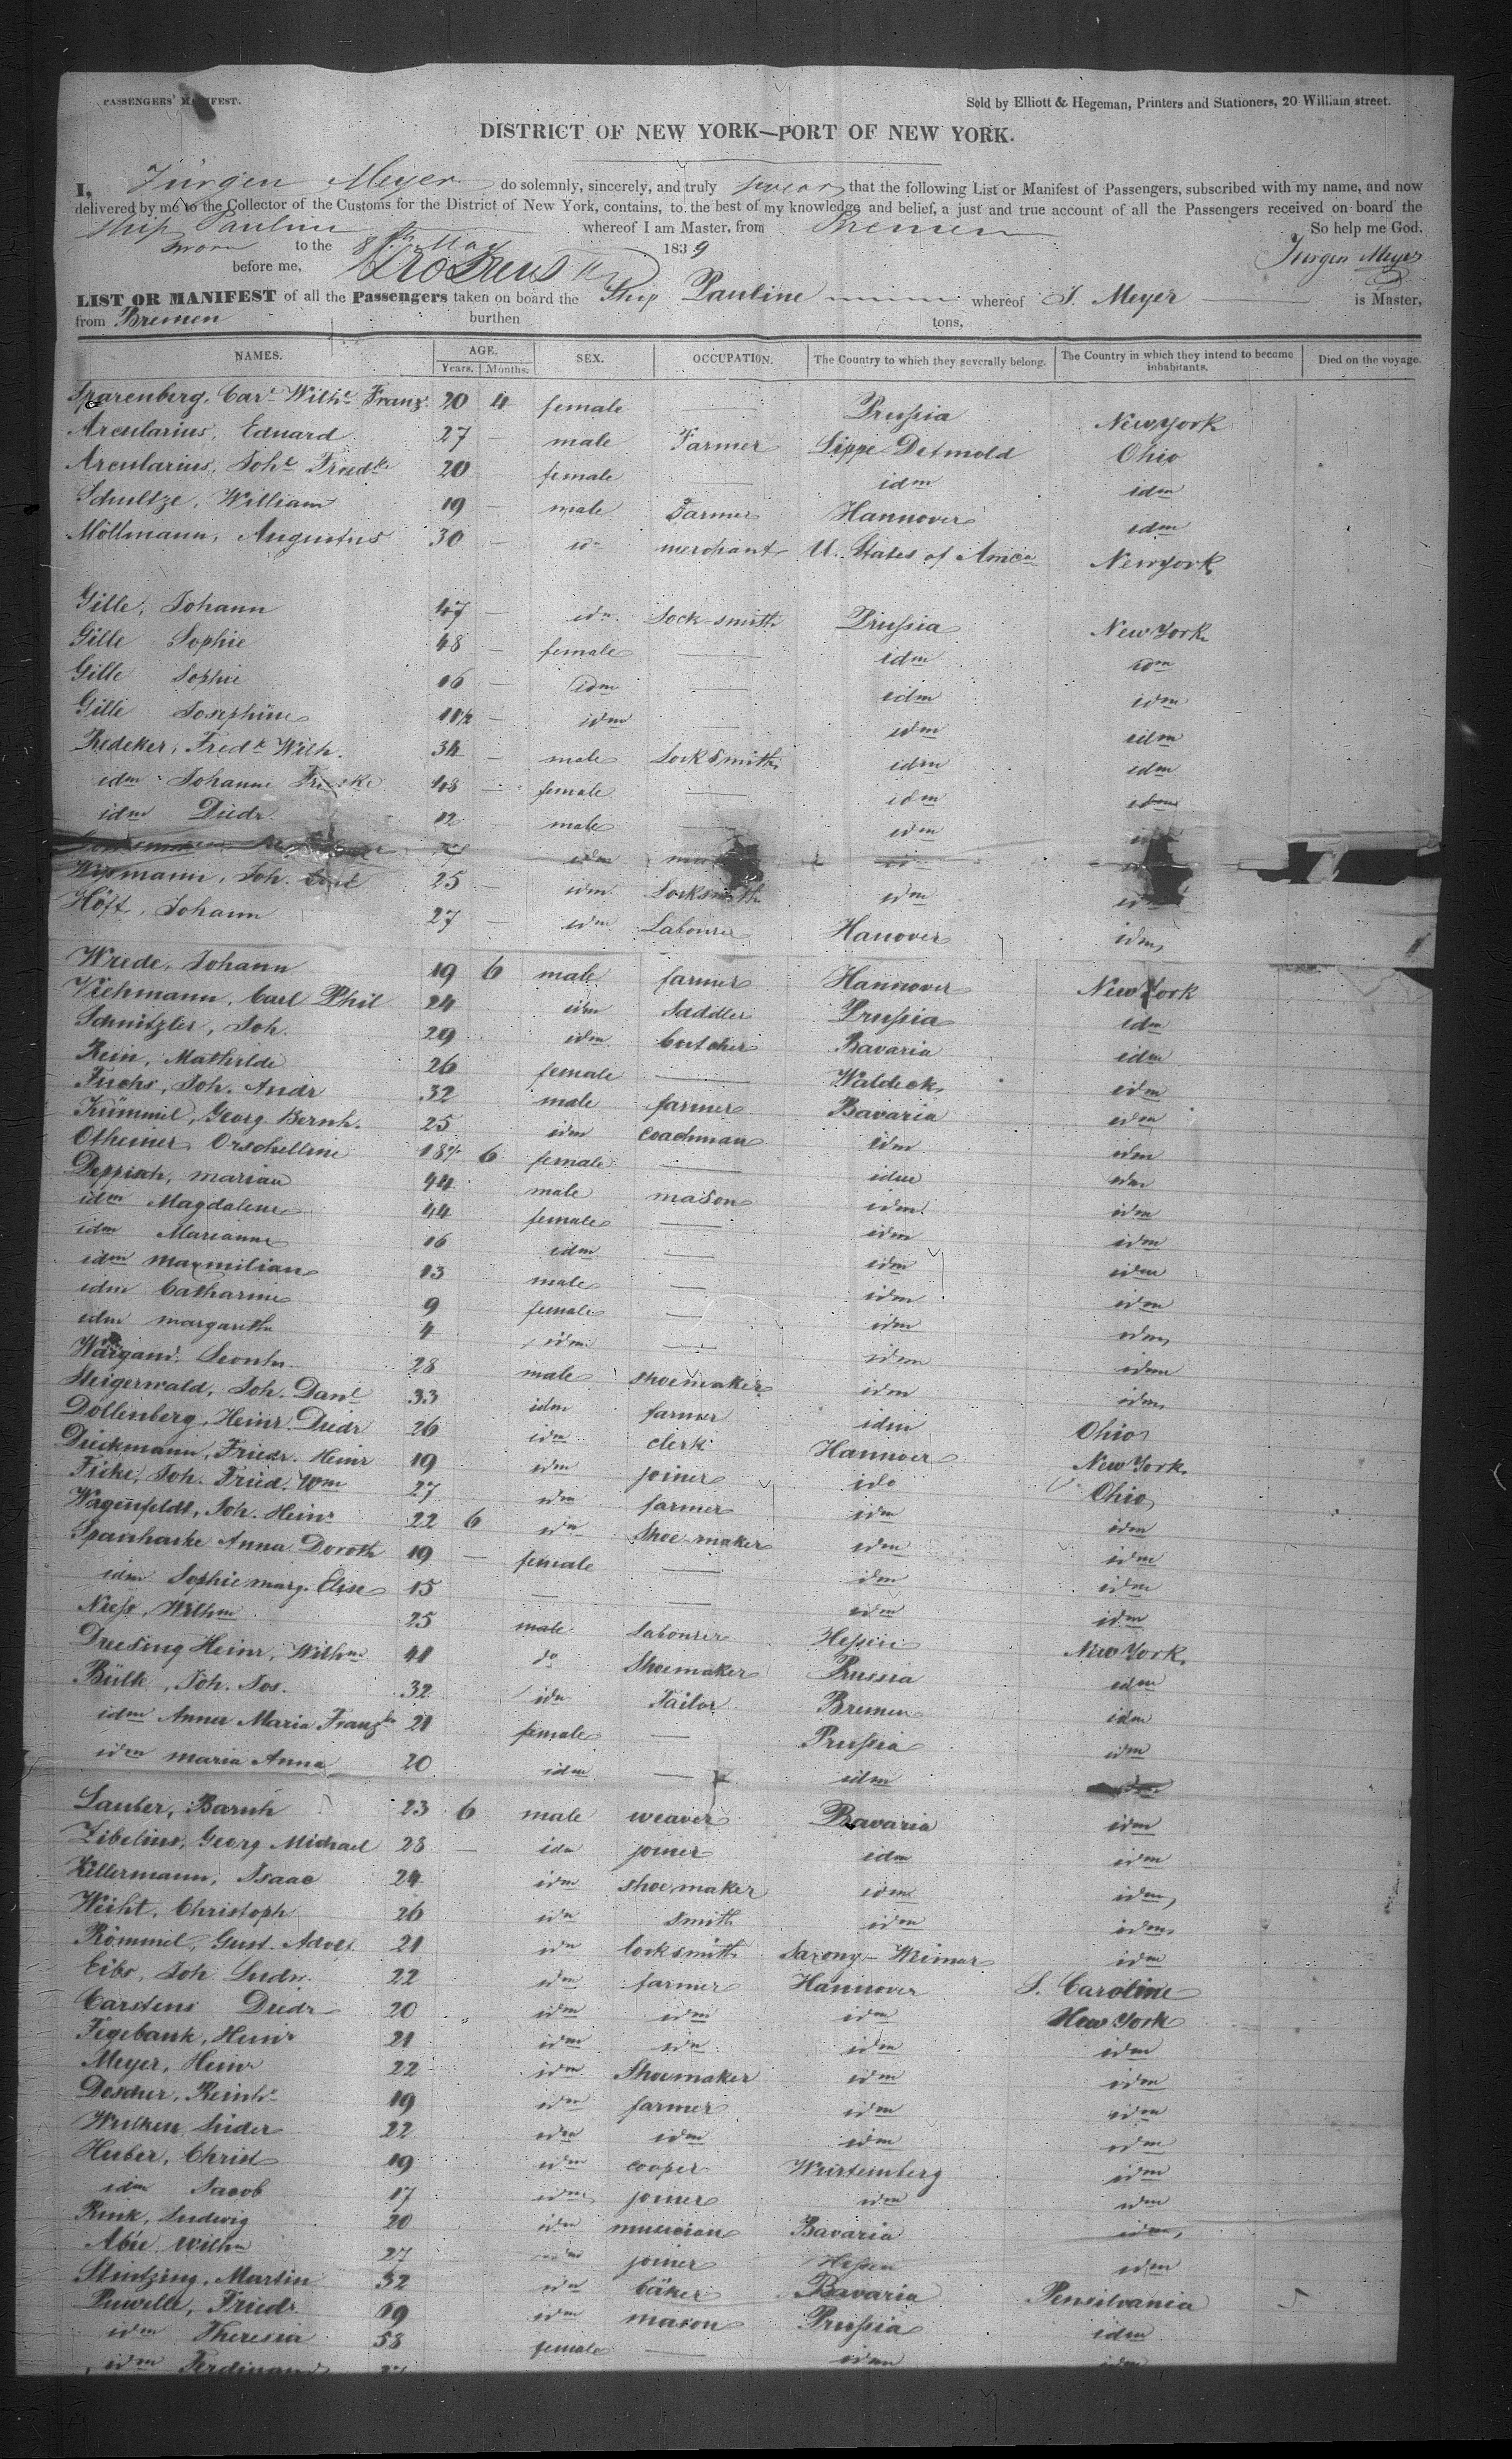 PASSENGERS' MANIFEST.
Sold by Elliott & Hegeman, Printers and Stationers, 20 William street.
DISTRICT OF NEW YORK—PORT OF NEW YORK.
I, Jürgen Meyer do solemnly, sincerely, and truly swear that the following List or Manifest of Passengers, subscribed with my name, and now
delivered by me to the Collector of the Customs for the District of New York, contains, to the best of my knowledge and belief, a just and true account of all the Passengers received on board the
Ship Pauline whereof I am Master, from Bremen So help me God.
Sworn to the 8th May 1839 Jürgen Meyer
before me,
LIST OR MANIFEST of all the Passengers taken on board the Ship Pauline whereof J. Meyer is Master,
from Bremen burthen tons,
NAMES. AGE. Years. Months. SEX. OCCUPATION. The Country to which they severally belong. The Country in which they intend to become inhabitants. Died on the voyage.
Sparenberg, Carl Wilhe Franz. 20 4 female — Prussia New York
Arcularius, Eduard 27 — male Farmer Lippe Detmold Ohio
Arcularius, Johe Friedke 20 female — idm idm
Schultze, William 19 — male Farmer Hannover idm
Möllmann, Augustus 30 — idm merchant U. States of Amca New York
Gille, Johann 47 — idm Lock-smith Prussia New York
Gille Sophie 48 — female — idm idm
Gille Sophie 16 — idm — idm idm
Gille Josephine 11½ — idm — idm idm
Redeker, Fredk Wilh. 34 — male Locksmith idm idm
idm Johanne 48 — female — idm idm
idm Diedr 12 — male — idm idm
idm
Wissmann, Joh. 25 — idm Locksmith idm idm
Höft, Johann 27 — idm Labourer Hanover idm
Wrede, Johann 19 6 male farmer Hannover New York
Viehmann, Carl Phil 24 idm Saddler Prussia idm
Schnitzler, Joh. 29 idm butcher Bavaria idm
Rein, Mathilde 26 female — Waldeck idm
Fuchs, Joh. Andr 32 male farmer Bavaria idm
Kümmel, Georg Bernh. 25 idm coachman idm idm
Otheimer Orschelline 18 6 female — idm idm
Deppisch, marian 44 male mason idm idm
idm Magdalene 44 female — idm idm
idm Marianne 16 idm — idm idm
idm maxmilian 13 male — idm idm
idm Catharine 9 female — idm idm
idm margareth 4 idm — idm idm
Leonh. 28 male shoemaker idm idm
Steigerwald, Joh. Danl 33 idm farmer idm Ohio
Dollenberg, Heinr. Diedr 26 idm clerk Hannover New York
Dieckmann, Friedr. Heinr 19 idm joiner ido Ohio
Ficke, Joh. Fried. Wm 27 idm farmer idm idm
Wagenfeldt, Joh. Heinr 22 6 idm Shoe-maker idm idm
Sparrharke Anna Doroth 19 — female — idm idm
idm Sophie marg. Elise 15 — — idm idm
Niess, Wilhm 25 male labourer Hessen New York
Duesing Heinr, Wilhm 41 do Shoemaker Prussia idm
Bülte, Joh. Jos. 32 idm Tailor Bremen idm
idm Anna Maria Franz 21 female — Prussia idm
idm maria Anna 20 idm — idm
Lauber, Baruh 23 6 male weaver Bavaria idm
Zibelius, Georg Michael 28 — idm joiner idm idm
Killermann, Isaac 24 idm shoemaker idm idm
Weiht, Christoph 26 idm smith idm idm
Römmel, Gust. Adolf 21 idm locksmith Saxony-Weimar idm
Eibs, Joh Ludw. 22 idm farmer Hannover S. Caroline
Carstens Diedr 20 idm idm idm New York
Figebank, Heinr 21 idm idm idm idm
Meyer, Heinr 22 idm Shoemaker idm idm
Descher, Reinh. 19 idm farmer idm idm
Wulken Lüder 22 idm idm idm idm
Huber, Christ 19 idm cooper Wurtemberg idm
idm Jacob 17 idm joiner idm idm
Rink, Ludwig 20 idm musician Bavaria idm
Abie, Wilhm 27 idm joiner Hessen idm
Stintzing, Martin 32 idm bäker Bavaria Pensilvania
Friedr. 69 idm mason Prussia idm
idm Theresia 58 female — idm idm
idm Ferdinand